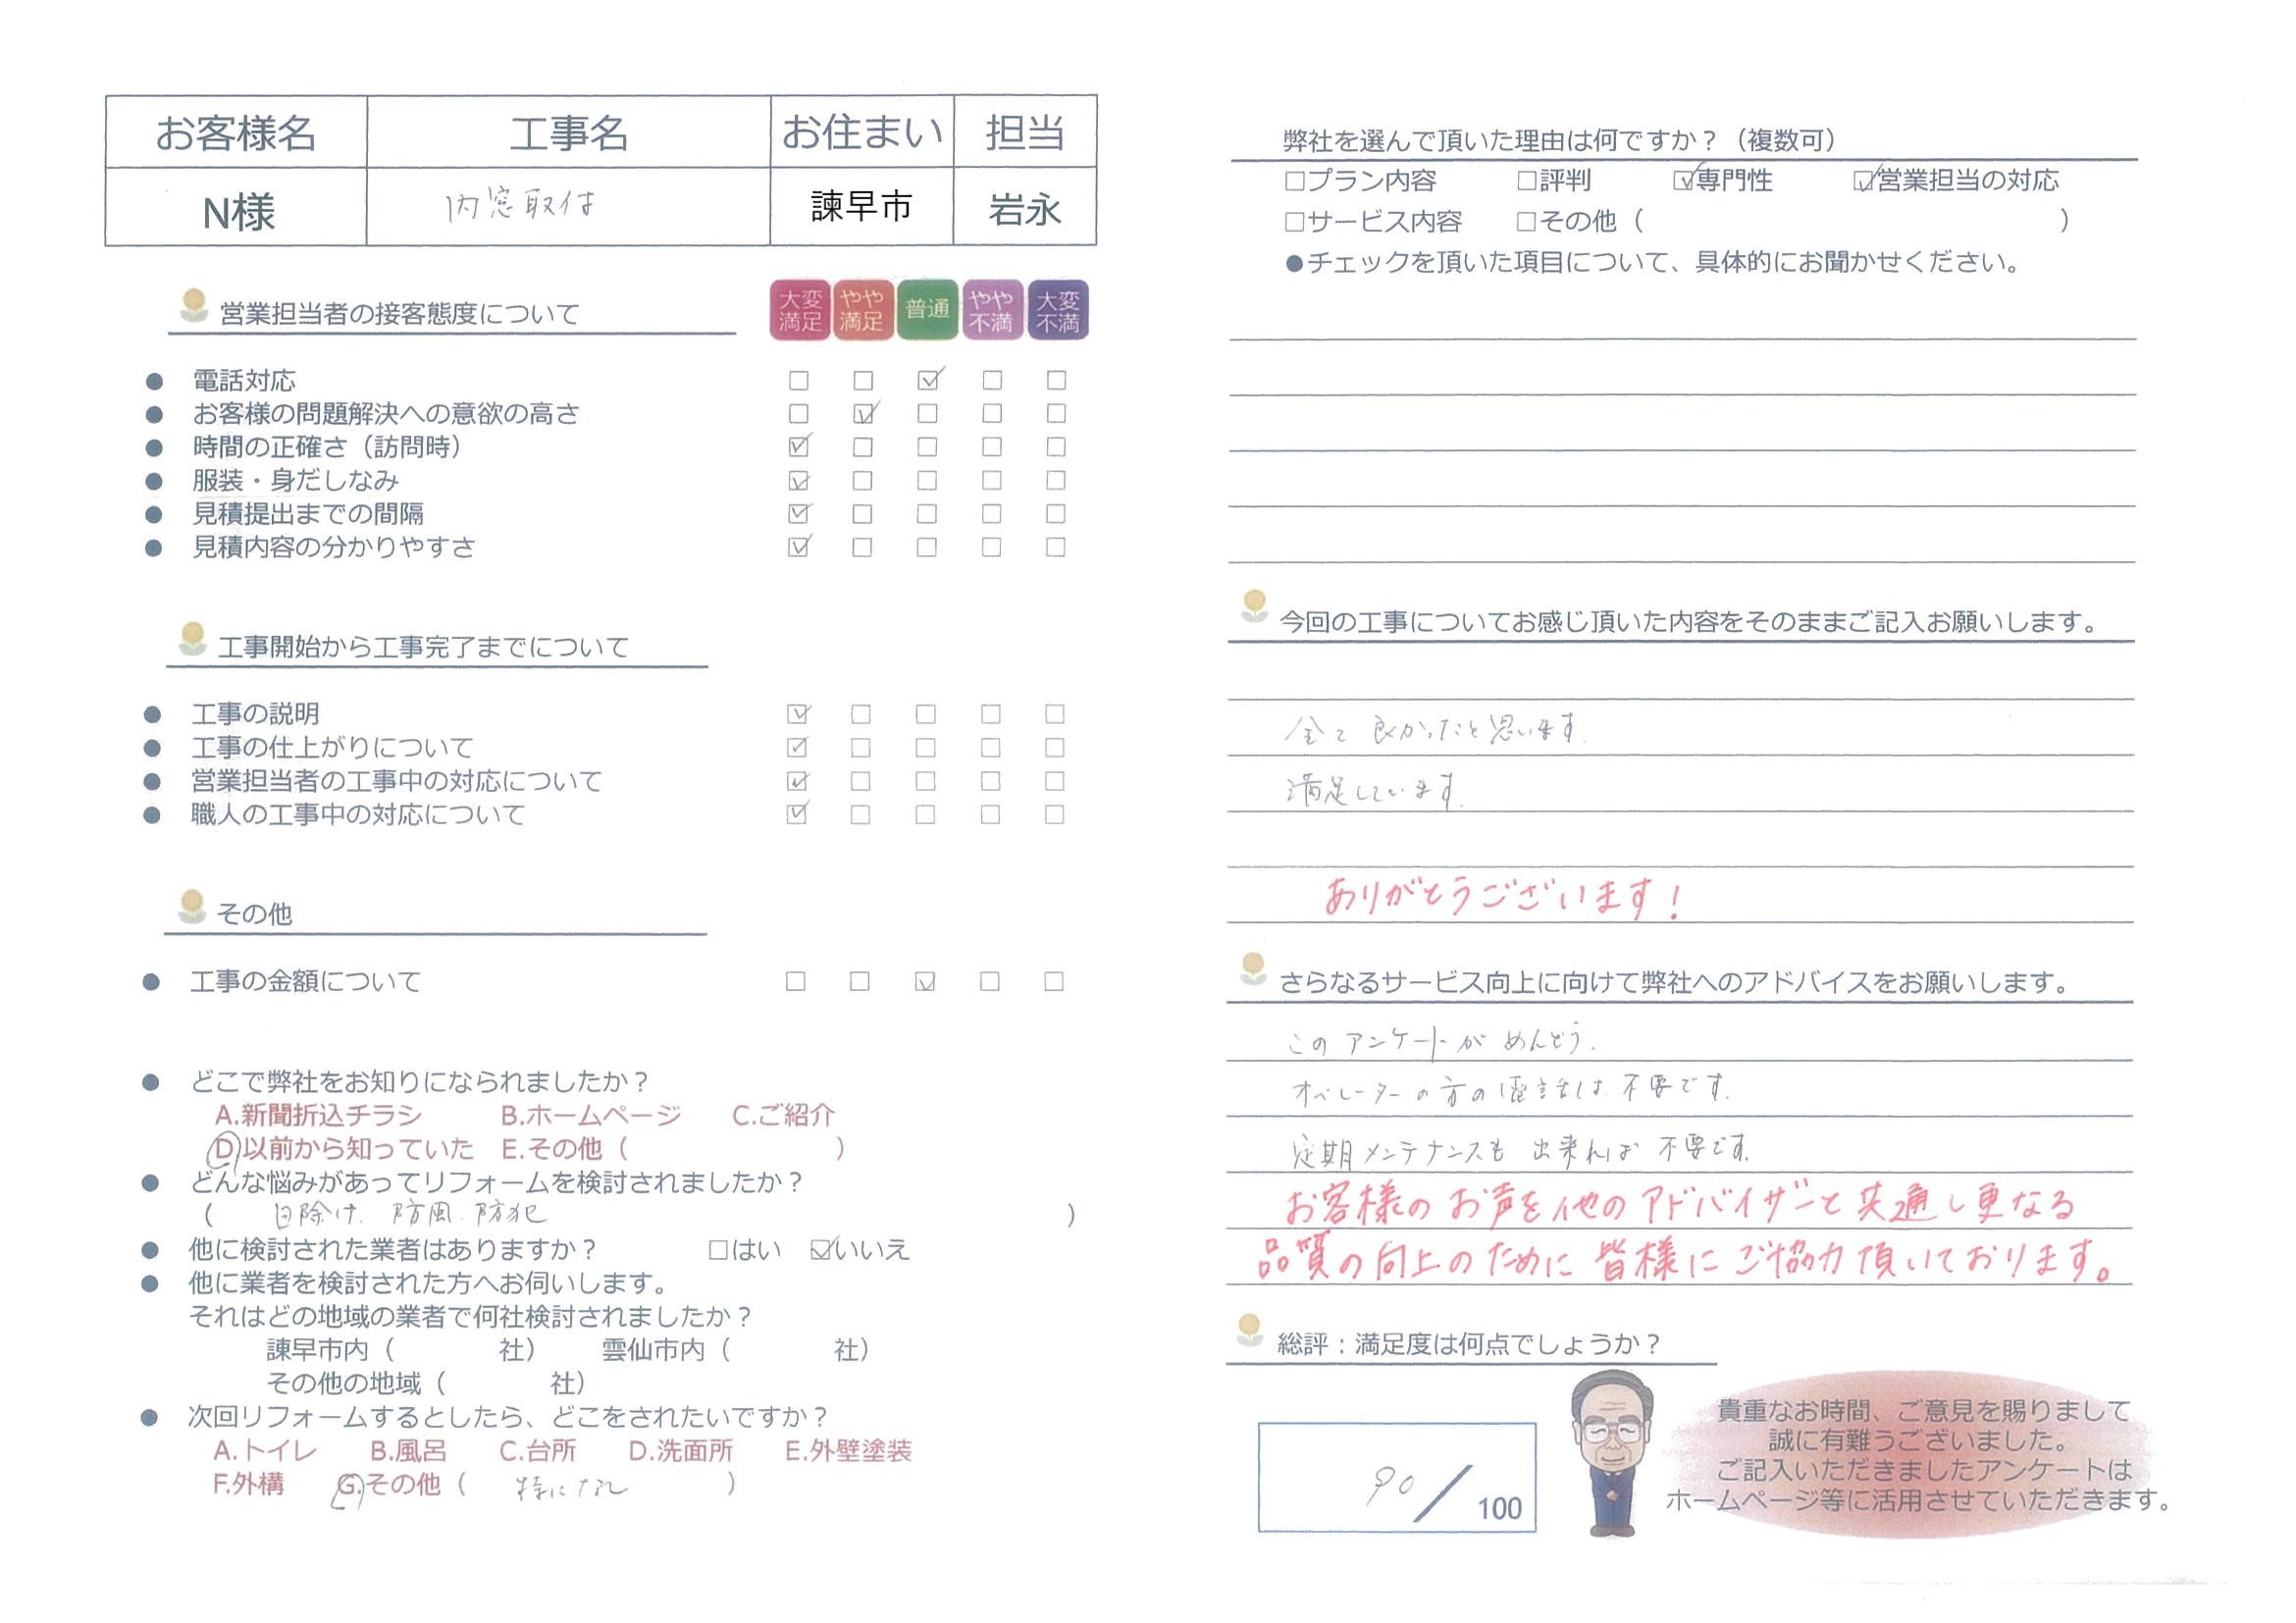 お客様名 工事名 お住まい 担当
N様 内窓取付 諫早市 岩永
営業担当者の接客態度について
大変満足 やや満足 普通 やや不満 大変不満
● 電話対応 □ □ ☑ □ □
● お客様の問題解決への意欲の高さ □ ☑ □ □ □
● 時間の正確さ（訪問時） ☑ □ □ □ □
● 服装・身だしなみ ☑ □ □ □ □
● 見積提出までの間隔 ☑ □ □ □ □
● 見積内容の分かりやすさ ☑ □ □ □ □
工事開始から工事完了までについて
● 工事の説明 ☑ □ □ □ □
● 工事の仕上がりについて ☑ □ □ □ □
● 営業担当者の工事中の対応について ☑ □ □ □ □
● 職人の工事中の対応について ☑ □ □ □ □
その他
● 工事の金額について □ □ ☑ □ □
● どこで弊社をお知りになられましたか？
A.新聞折込チラシ B.ホームページ C.ご紹介
D.以前から知っていた E.その他（ ）
● どんな悩みがあってリフォームを検討されましたか？
（ 日除け．防風．防犯 ）
● 他に検討された業者はありますか？ □はい ☑いいえ
● 他に業者を検討された方へお伺いします。
それはどの地域の業者で何社検討されましたか？
諫早市内（ 社） 雲仙市内（ 社）
その他の地域（ 社）
● 次回リフォームするとしたら、どこをされたいですか？
A.トイレ B.風呂 C.台所 D.洗面所 E.外壁塗装
F.外構 G.その他（ 特になし ）
弊社を選んで頂いた理由は何ですか？（複数可）
□プラン内容 □評判 ☑専門性 ☑営業担当の対応
□サービス内容 □その他（ ）
●チェックを頂いた項目について、具体的にお聞かせください。
今回の工事についてお感じ頂いた内容をそのままご記入お願いします。
全て良かったと思います．
満足しています．
ありがとうございます！
さらなるサービス向上に向けて弊社へのアドバイスをお願いします。
このアンケートがめんどう．
オペレーターの方の電話は不要です．
定期メンテナンスも出来れば不要です．
お客様のお声を他のアドバイザーと共通し更なる
品質の向上のために皆様にご協力頂いております。
総評：満足度は何点でしょうか？
90／100
貴重なお時間、ご意見を賜りまして
誠に有難うございました。
ご記入いただきましたアンケートは
ホームページ等に活用させていただきます。